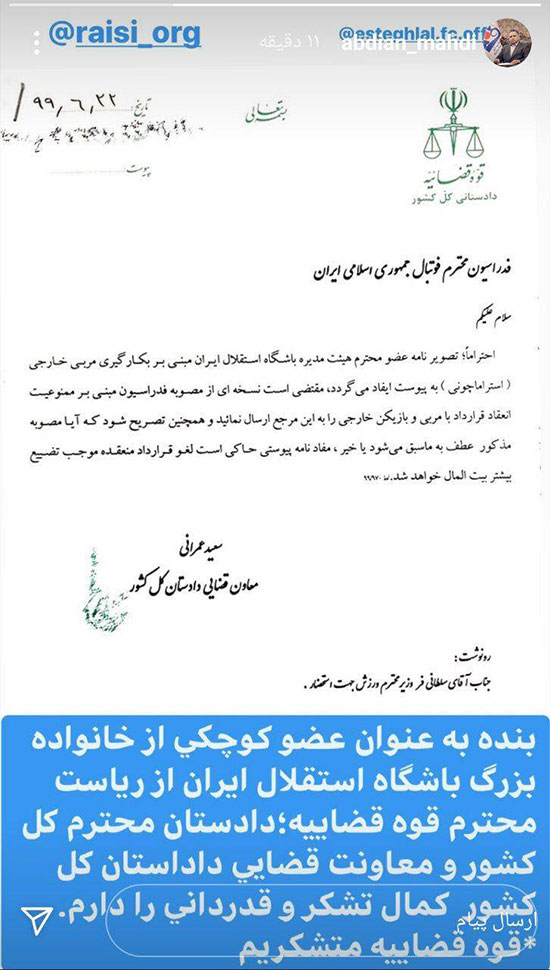 @raisi_org
@esteghlal.fc.offi
abdian_mahdi
۱۱ دقیقه
بسمه تعالی
تاریخ: ۹۹٫۶٫۲۲
پیوست
قوه قضائیه
دادستانی کل کشور
فدراسیون محترم فوتبال جمهوری اسلامی ایران
سلام علیکم
احتراماً؛ تصویر نامه عضو محترم هیئت مدیره باشگاه استقلال ایران مبنی بر بکارگیری مربی خارجی
( استراماچونی ) به پیوست ایفاد می‌گردد، مقتضی است نسخه ای از مصوبه فدراسیون مبنی بر ممنوعیت
انعقاد قرارداد با مربی و بازیکن خارجی را به این مرجع ارسال نمائید و همچنین تصریح شود که آیا مصوبه
مذکور عطف به ماسبق می‌شود یا خیر ، مفاد نامه پیوستی حاکی است لغو قرارداد منعقده موجب تضییع
بیشتر بیت المال خواهد شد.
سعید عمرانی
معاون قضایی دادستان کل کشور
رونوشت:
جناب آقای سلطانی فر وزیر محترم ورزش جهت استحضار .
بنده به عنوان عضو کوچکي از خانواده
بزرگ باشگاه استقلال ایران از ریاست
محترم قوه قضاییه؛دادستان محترم کل
کشور و معاونت قضایي داداستان کل
کشور کمال تشکر و قدرداني را دارم.
*قوه قضاییه متشکریم
ارسال پیام